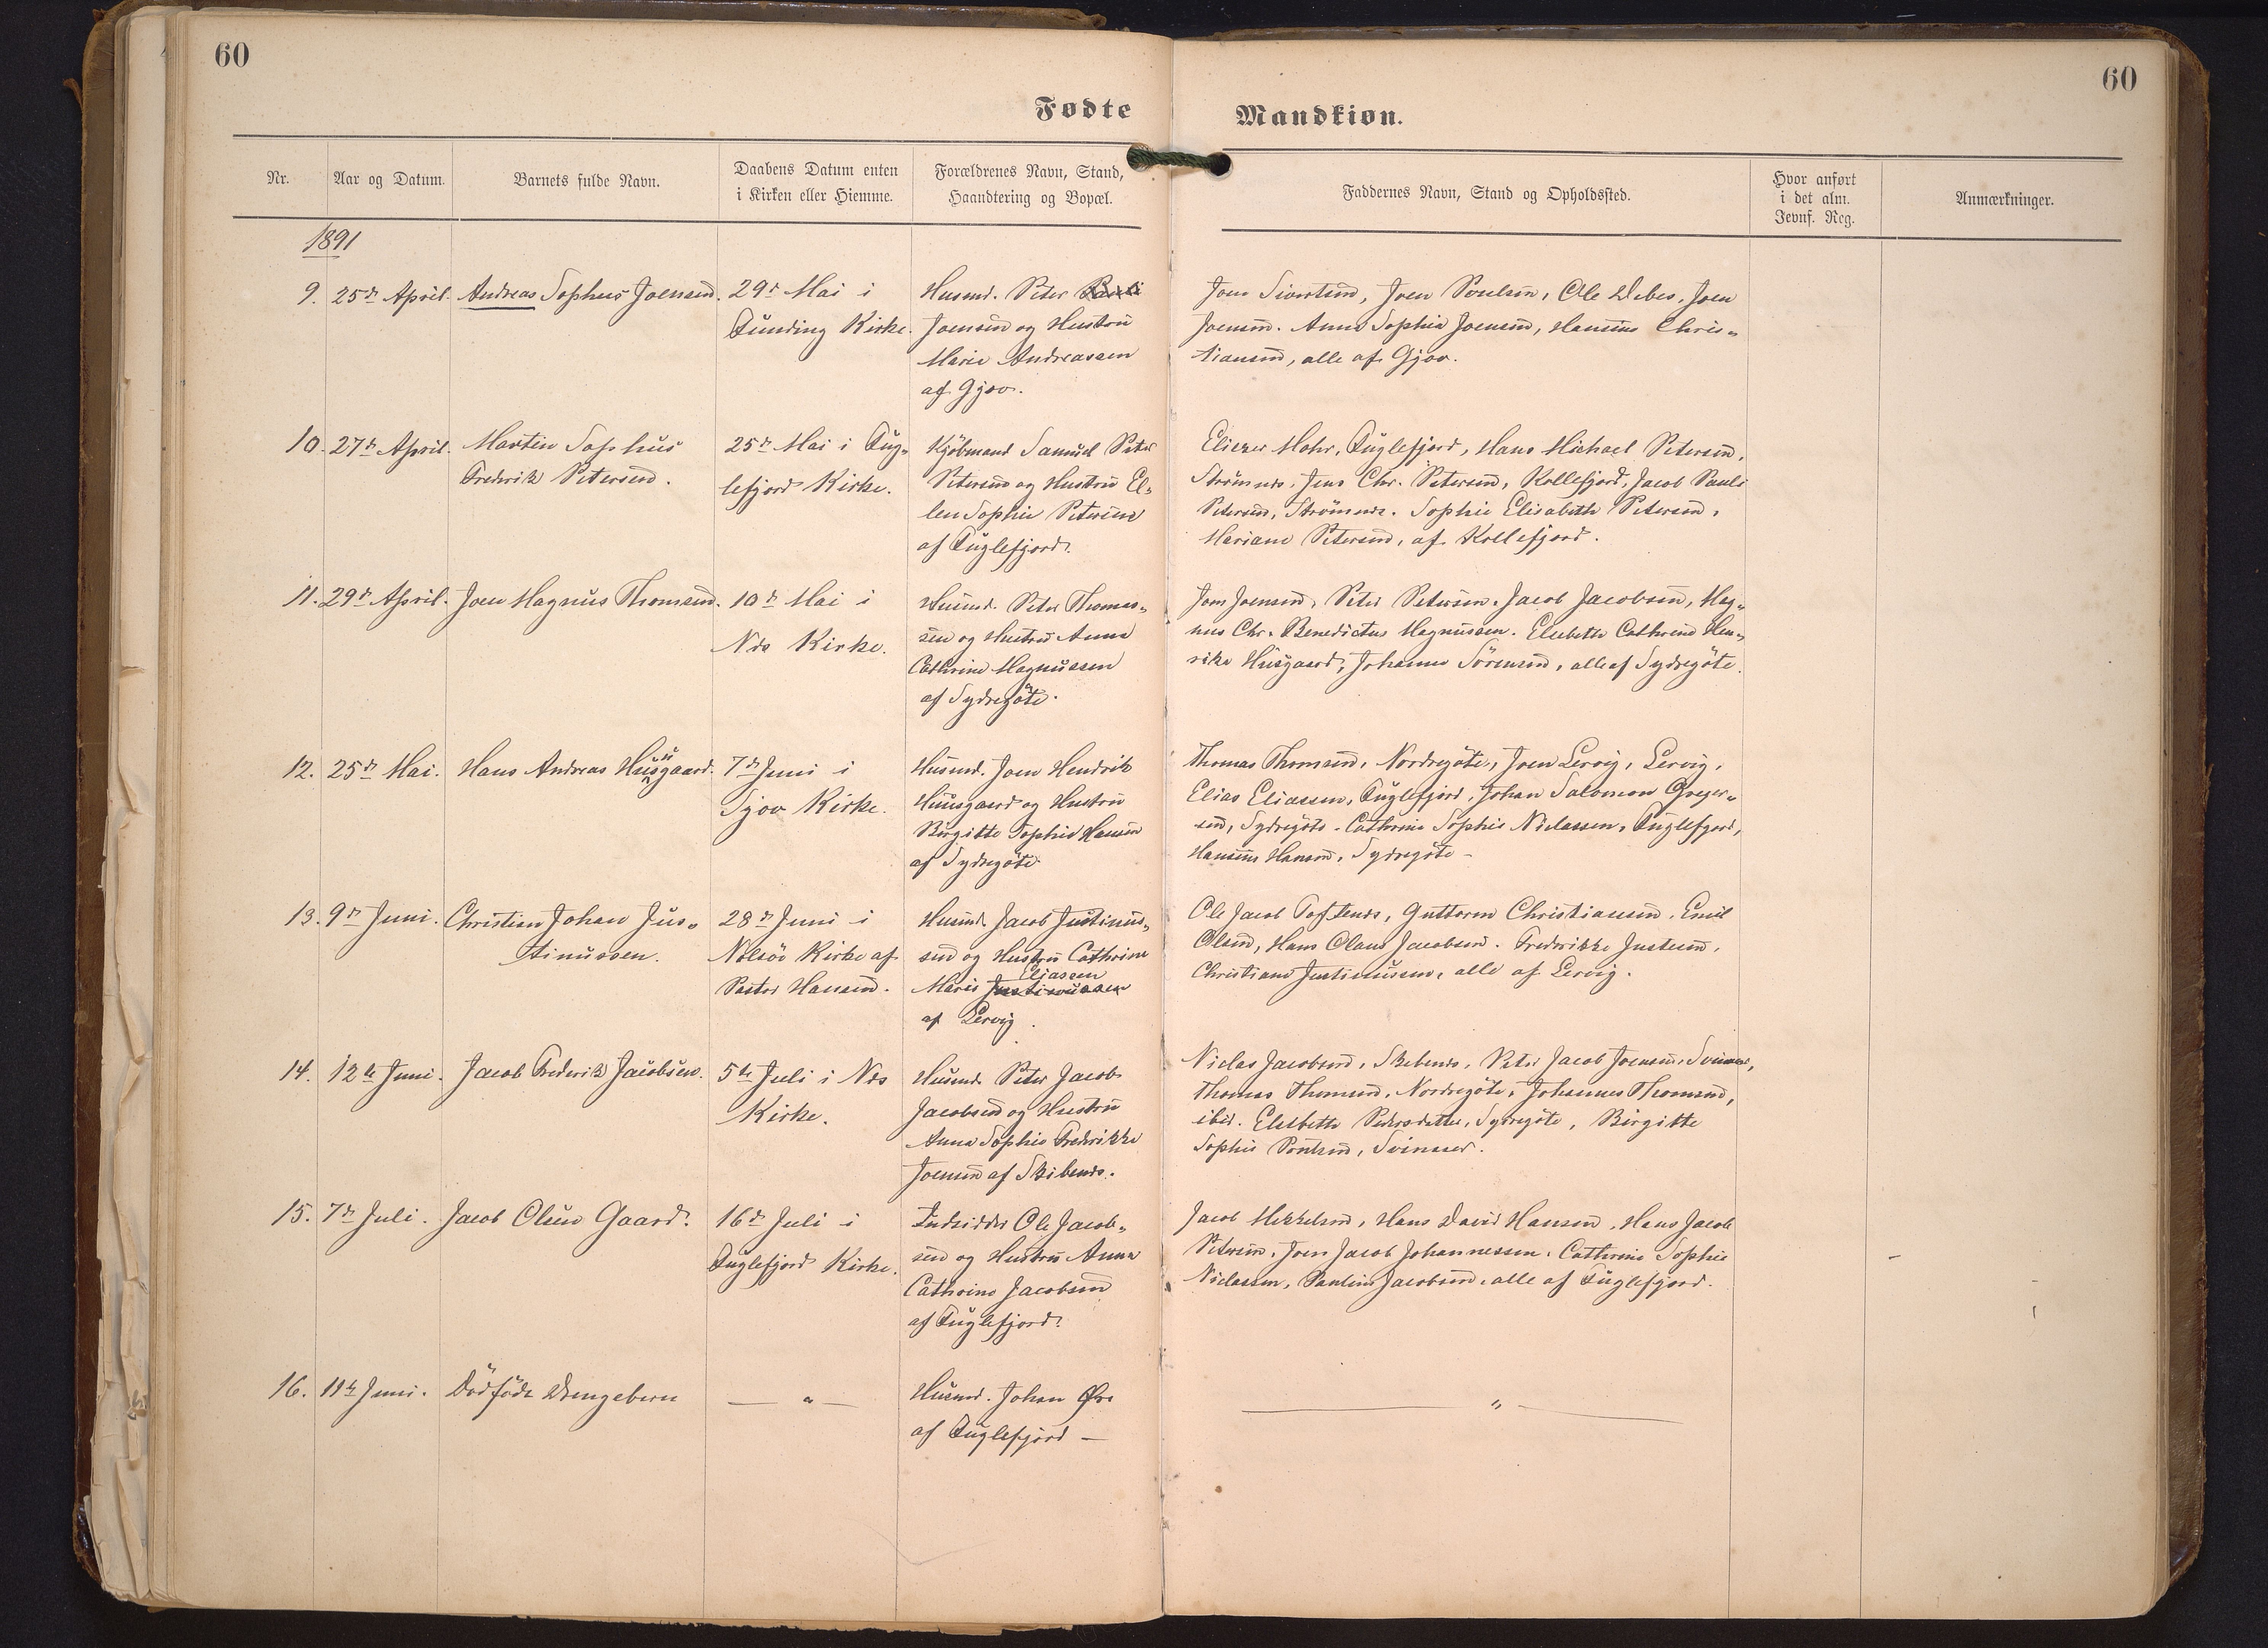 60
60
Fødte Mandkiøn.
Nr.
Aar og Datum.
Barnets fulde Navn.
Daabens Datum enten
i Kirken eller Hiemme.
Forældrenes Navn, Stand,
Haandtering og Bopæl.
Faddernes Navn, Stand og Opholdssted.
Hvor anført
i det alm.
Jevnf. Reg.
Anmærkninger.
1891
9. 25de April.
Andreas Sophus Joensen.
29de Mai i
Funding Kirke.
Husmd. Peter
Joensen og Hustru
Marie Andreassen
af Gjov.
Joen Sivertsen, Joen Poulsen, Ole Debes, Joen
Joensen. Anna Sophia Joensen, Hansine Chris-
tiansen, alle af Gjov.
10. 27de April.
Martin Sophus
Frederik Petersen.
25de Mai i Fug-
lefjord Kirke.
Kjöbmand Samuel Peter
Petersen og Hustru El-
len Sophie Petersen
af Fuglefjord.
Eliezer Mohr, Fuglefjord, Hans Michael Petersen,
Strömnes, Jens Chr. Petersen, Kollefjord, Jacob Pauli
Petersen, Strömnes. Sophie Elisabeth Petersen,
Mariane Petersen, af Kollefjord.
11. 29de April.
Joen Magnus Thomsen.
10de Mai i
Næs Kirke.
Husmd. Peter Thomas-
sen og Hustru Anna
Cathrine Magnussen
af Sydregöte.
Joen Joensen, Peter Petersen, Jacob Jacobsen, Mag-
nus Chr. Benedictus Magnussen. Elsebeth Cathrine Hen-
rike Husgaard, Johanne Sörensen, alle af Sydregöte.
12. 25de Mai.
Hans Andreas Huusgaard.
7de Juni i
Gjov Kirke.
Husmd. Joen Hendrik
Huusgaard og Hustru
Birgitte Sophie Hansen
af Sydregöte
Thomas Thomsen, Nordregöte, Joen Lervig, Lervig,
Elias Eliassen, Fuglefjord, Johan Salomon Greger-
sen, Sydregöte. Cathrine Sophie Niclassen, Fuglefjord,
Hansine Hansen, Sydregöte -
13. 9de Juni.
Christian Johan Jus-
tinussen.
28de Juni i
Nolsöe Kirke af
Pastor Hansen.
Husmd. Jacob Justinus-
sen og Hustru Cathrine
Eliassen
Marie Justinussen
af Lervig.
Ole Jacob Toftenes, Guttorm Christiansen, Emil
Olsen, Hans Olaus Jacobsen. Frederikke Justesen,
Christiane Justinussen, alle af Lervig.
14. 12te Juni.
Jacob Frederik Jacobsen.
5te Juli i Næs
Kirke.
Husmd. Peter Jacob
Jacobsen og Hustru
Anna Sophie Frederikke
Joensen af Skibenes.
Niclas Jacobsen, Skibenes, Peter Jacob Joensen, Svinaaer,
Thomas Thomsen, Nordregöte, Johannes Thomsen,
ibid. Elsebeth Pedersdatter, Sydregöte, Birgitte
Sophie Poulsen, Svinaaer.
15. 7de Juli.
Jacob Olsen Gaard.
16de Juli i
Fuglefjord Kirke.
Indsidder Ole Jacob-
sen og Hustru Anna
Cathrine Jacobsen
af Fuglefjord.
Jacob Mikkelsen, Hans David Hansen, Hans Jacob
Petersen, Joen Jacob Johannessen. Cathrine Sophie
Niclassen, Pauline Jacobsen, alle af Fuglefjord.
16. 11te Juni.
Dödfödt Drengebarn
— " —
Husmd. Johan
af Fuglefjord —
— " —